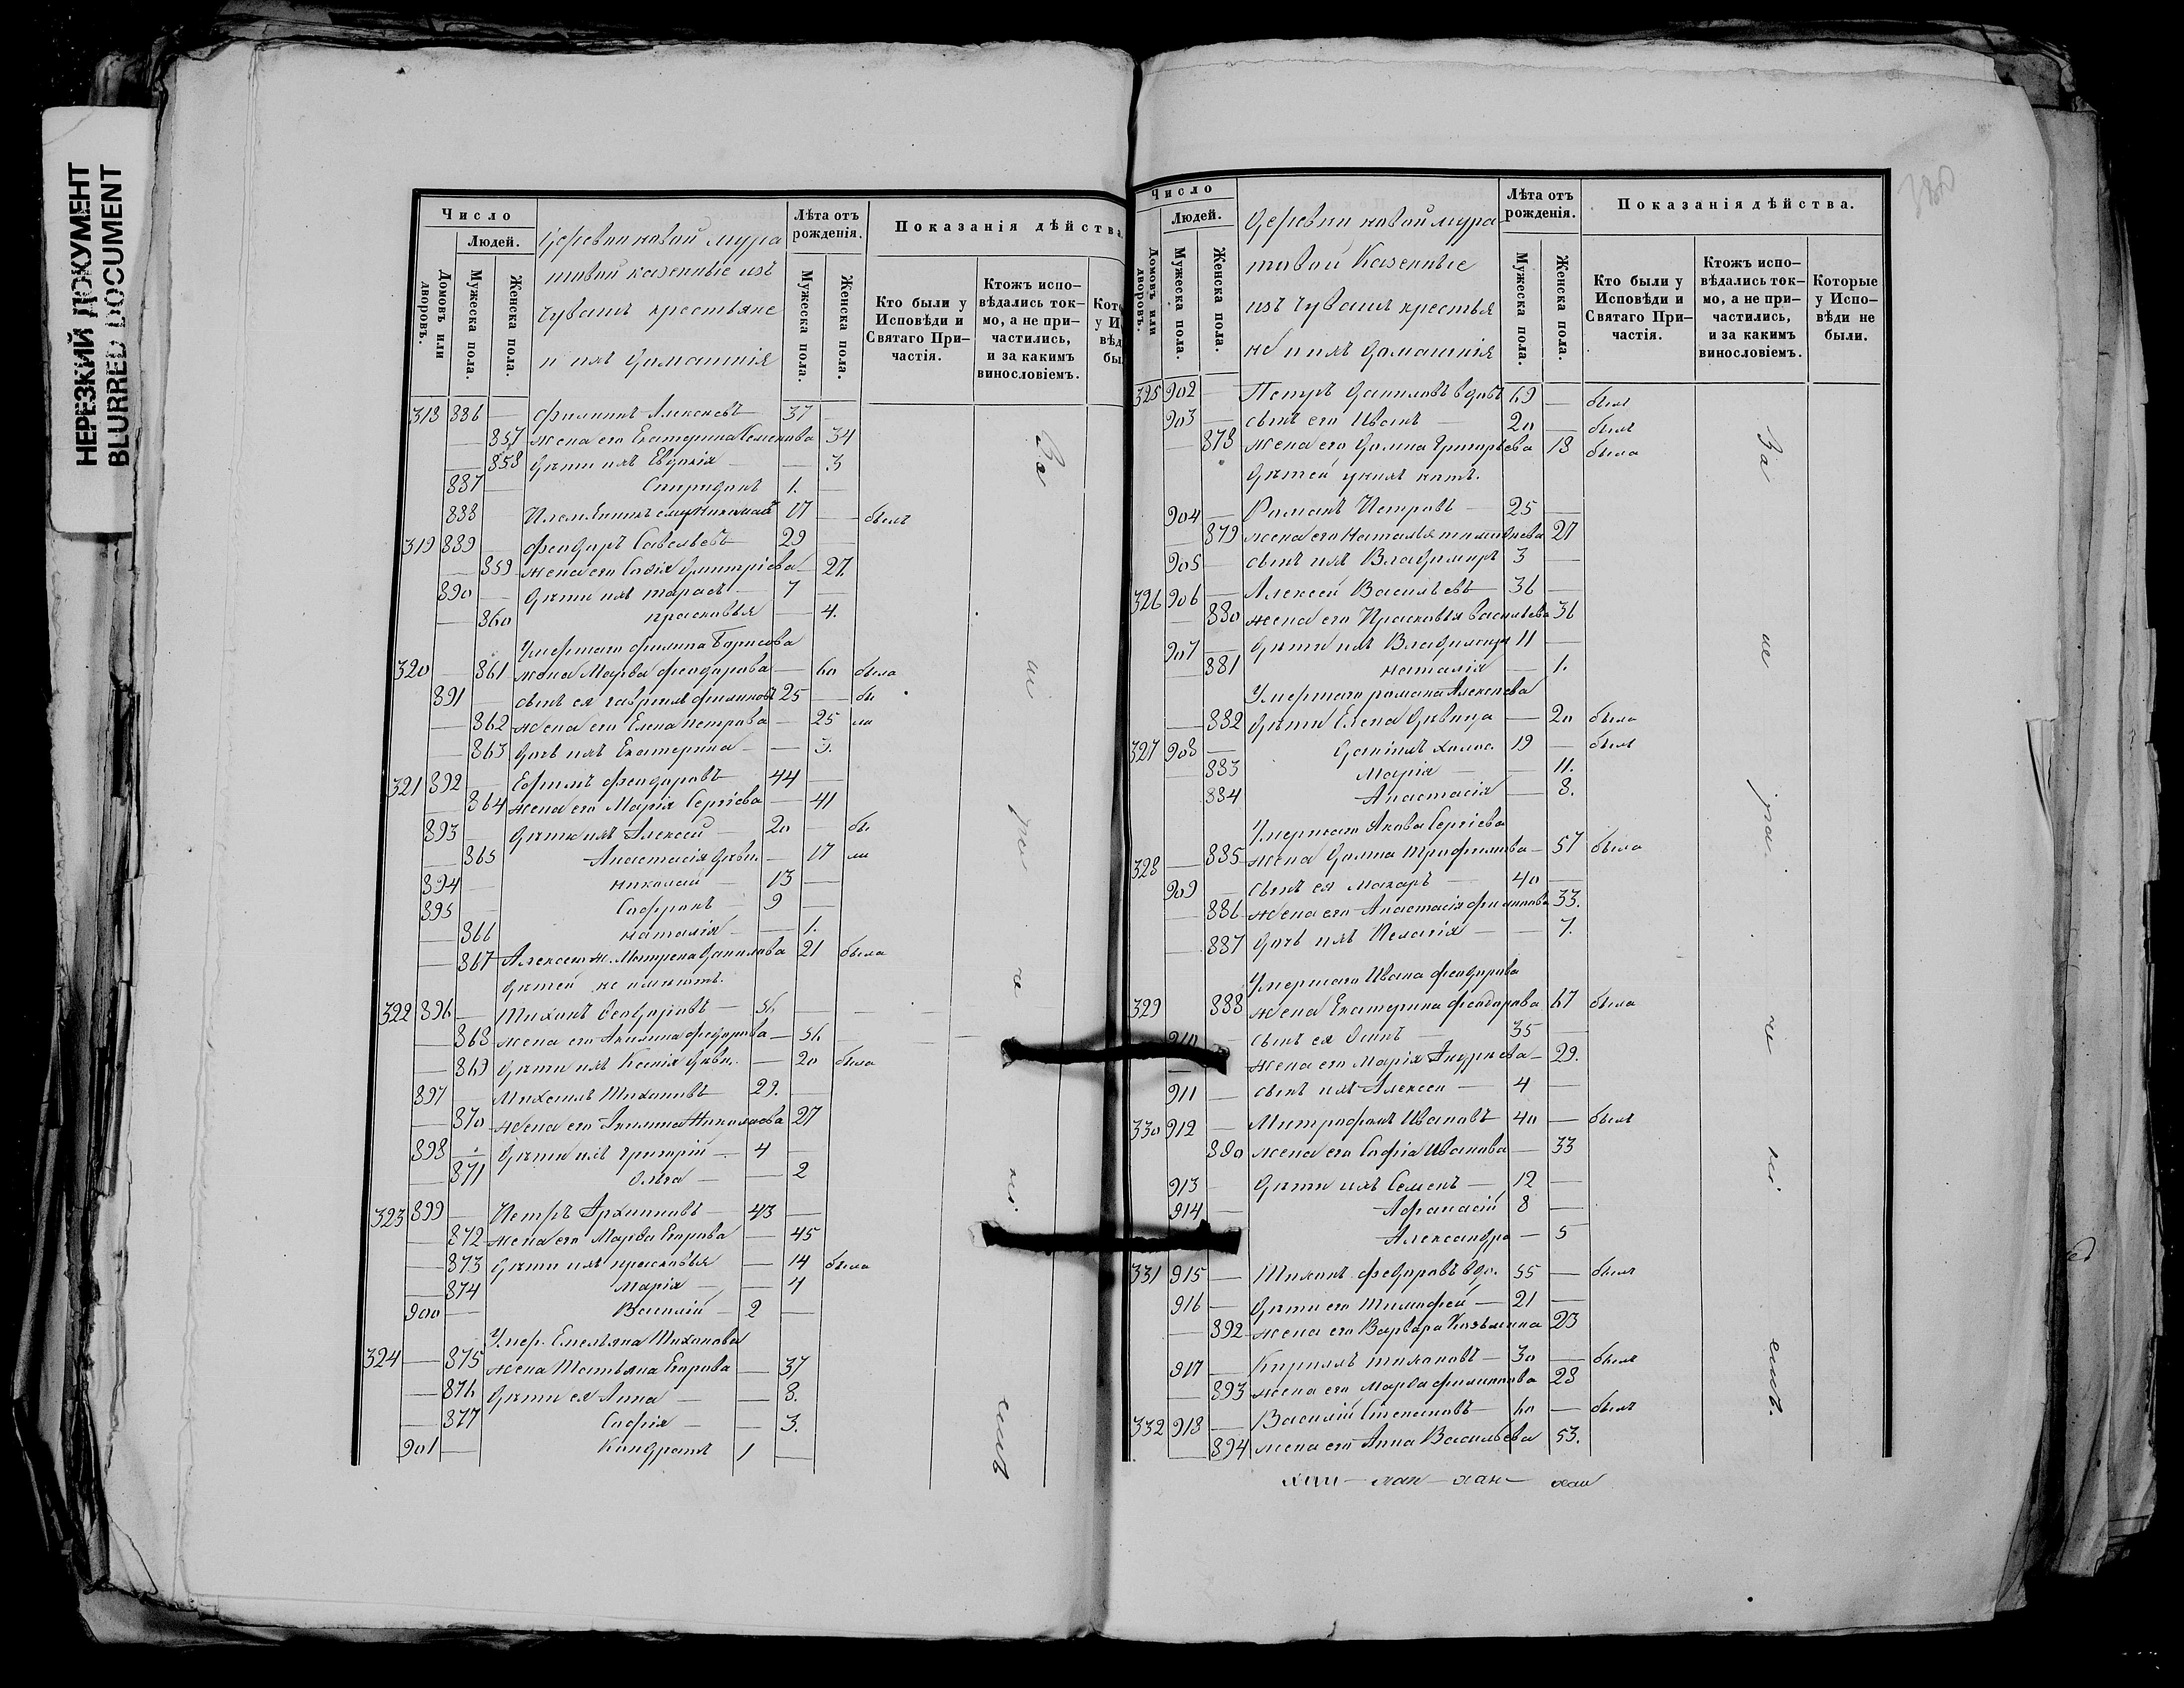 НЕРЕЗКИЙ ДОКУМЕНТ
BLURRED DOCUMENT
Число
Людей.
Домовъ или дворовъ.
Мужеска пола.
Женска пола.
Деревни новой мура
товой казенные изъ
чувашъ крестьяне
и ихъ домашнія
Лѣта отъ рожденія.
Мужеска пола.
Женска пола.
Показанія дѣйства
Кто были у Исповѣди и Святаго При-частія.
Ктожъ испо-вѣдались ток-мо, а не при-частились, и за какимъ винословіемъ.
318 886 — Филиппъ Алексѣевъ 37 —
— 857 жена его Екатерина Семенова 34
— 858 Дѣти ихъ Евдокія — 3
887 — Спиридонъ 1. —
888 Племянникъ ему Николай 17 — былъ
319 889 — Феодоръ Савельевъ 29 —
— 859 жена его Софія Дмитріева — 27.
890 — Дѣти ихъ Тарасъ — 7 —
— 860 Прасковья — 4.
Умершаго Филипа Борисова
320 — 861 жена Марѳа Феодорова — 60 была
891 — сынъ ея Гаврилъ Филиповъ 25 — бы
— 862 жена его Елена Петрова — 25 ли
— 863 Дочь ихъ Екатерина — — 3.
321 892 — Ефимъ Феодоровъ 44 —
— 864 жена его Марія Сергіева — 41
893 — Дѣти ихъ Алексей — 20 — бы
— 865 Анастасія дѣви. — 17 ли
894 — Николай — 13 —
895 Софронъ — 9 —
— 866 Наталія — — 1.
— 867 Алексея ж. Матрена Данилова 21 была
Дѣтей не имѣютъ.
322 896 — Тихонъ Феодоровъ — 56
— 868 жена его Акилина Федорова — 56
— 869 Дѣти ихъ Ксенія дѣви. — 20 была
897 — Михаилъ Тихоновъ 29. —
— 870 жена его Акилина Николаева 27
898 — Дѣти ихъ Григорій — 4 —
— 871 Ольга — — 2
323 899 — Петръ Архиповъ — 43 —
— 872 жена его Марѳа Егорова — 45
— 873 Дѣти ихъ Прасковья — 14 была
— 874 Марія — — 4
900 — Василій — 2 —
Умер. Емельяна Тихонова
324 — 875 жена Татьяна Егорова — 37
— 876 Дѣти ея Анна — 8.
— 877 Софія — — 3.
901 — Кондратъ 1 —
За
Число
Людей.
Домовъ или дворовъ.
Мужеска пола.
Женска пола.
Деревни новой мура
товой Казенные
изъ чувашъ крестья
не и ихъ домашнія
Лѣта отъ рожденія.
Мужеска пола.
Женска пола.
Показанія дѣйства.
Кто были у Исповѣди и Святаго При-частія.
Ктожъ испо-вѣдались ток-мо, а не при-частились, и за какимъ винословіемъ.
Которые у Испо-вѣди не были.
325 902 — Петръ Даниловъ вдовъ 69 — былъ
903 — сынъ его Иванъ — 20 — былъ
— 878 жена его Домна Григорьева 18 была
Дѣтей у нихъ нѣтъ.
904 — Романъ Петровъ — 25 —
— 879 жена его Наталья Тимофеева 27
905 — сынъ ихъ Владимиръ 3 —
326 906 — Алексей Васильевъ — 36 —
— 880 жена его Прасковья Васильева 36
907 — Дѣти ихъ Владимиръ 11 —
— 881 Наталія — 1.
Умершаго Романа Алексеева
— 882 Дѣти Елена дѣвица — 20 была
327 908 — Даніилъ холос. 19 — былъ
883 Марія — — 11.
884 Анастасія — 8.
Умершаго Якова Сергіева
328 — 885 жена Домна Трофимова — 57 была
909 — сынъ ея Макаръ — 40 —
— 886 жена его Анастасія Филиппова 33.
— 887 Дочь ихъ Пелагія — — 7.
Умершаго Ивана Феодорова
329 888 жена Екатерина Феодорова 67 была
910 — сынъ ея Осипъ — 35 —
жена его Марія Андреева — 29.
911 — сынъ ихъ Алексей — 4 —
330 912 — Митрофанъ Ивановъ 40 — былъ
890 жена его Софія Иванова — 33
913 — Дѣти ихъ Семенъ — 12 —
914 — Афанасій 8 —
Александра — 5
331 915 — Тихонъ Федоровъ вдо. 55 — былъ
916 — Дѣти его Тимофей — 21 —
— 892 жена его Варвара Козьмина 23
917 — Кириллъ Тихоновъ — 30 — былъ
— 893 жена его Марѳа Филиппова 28
332 918 — Василій Степановъ — 60 — былъ
894 жена его Анна Васильева 53.
За
380